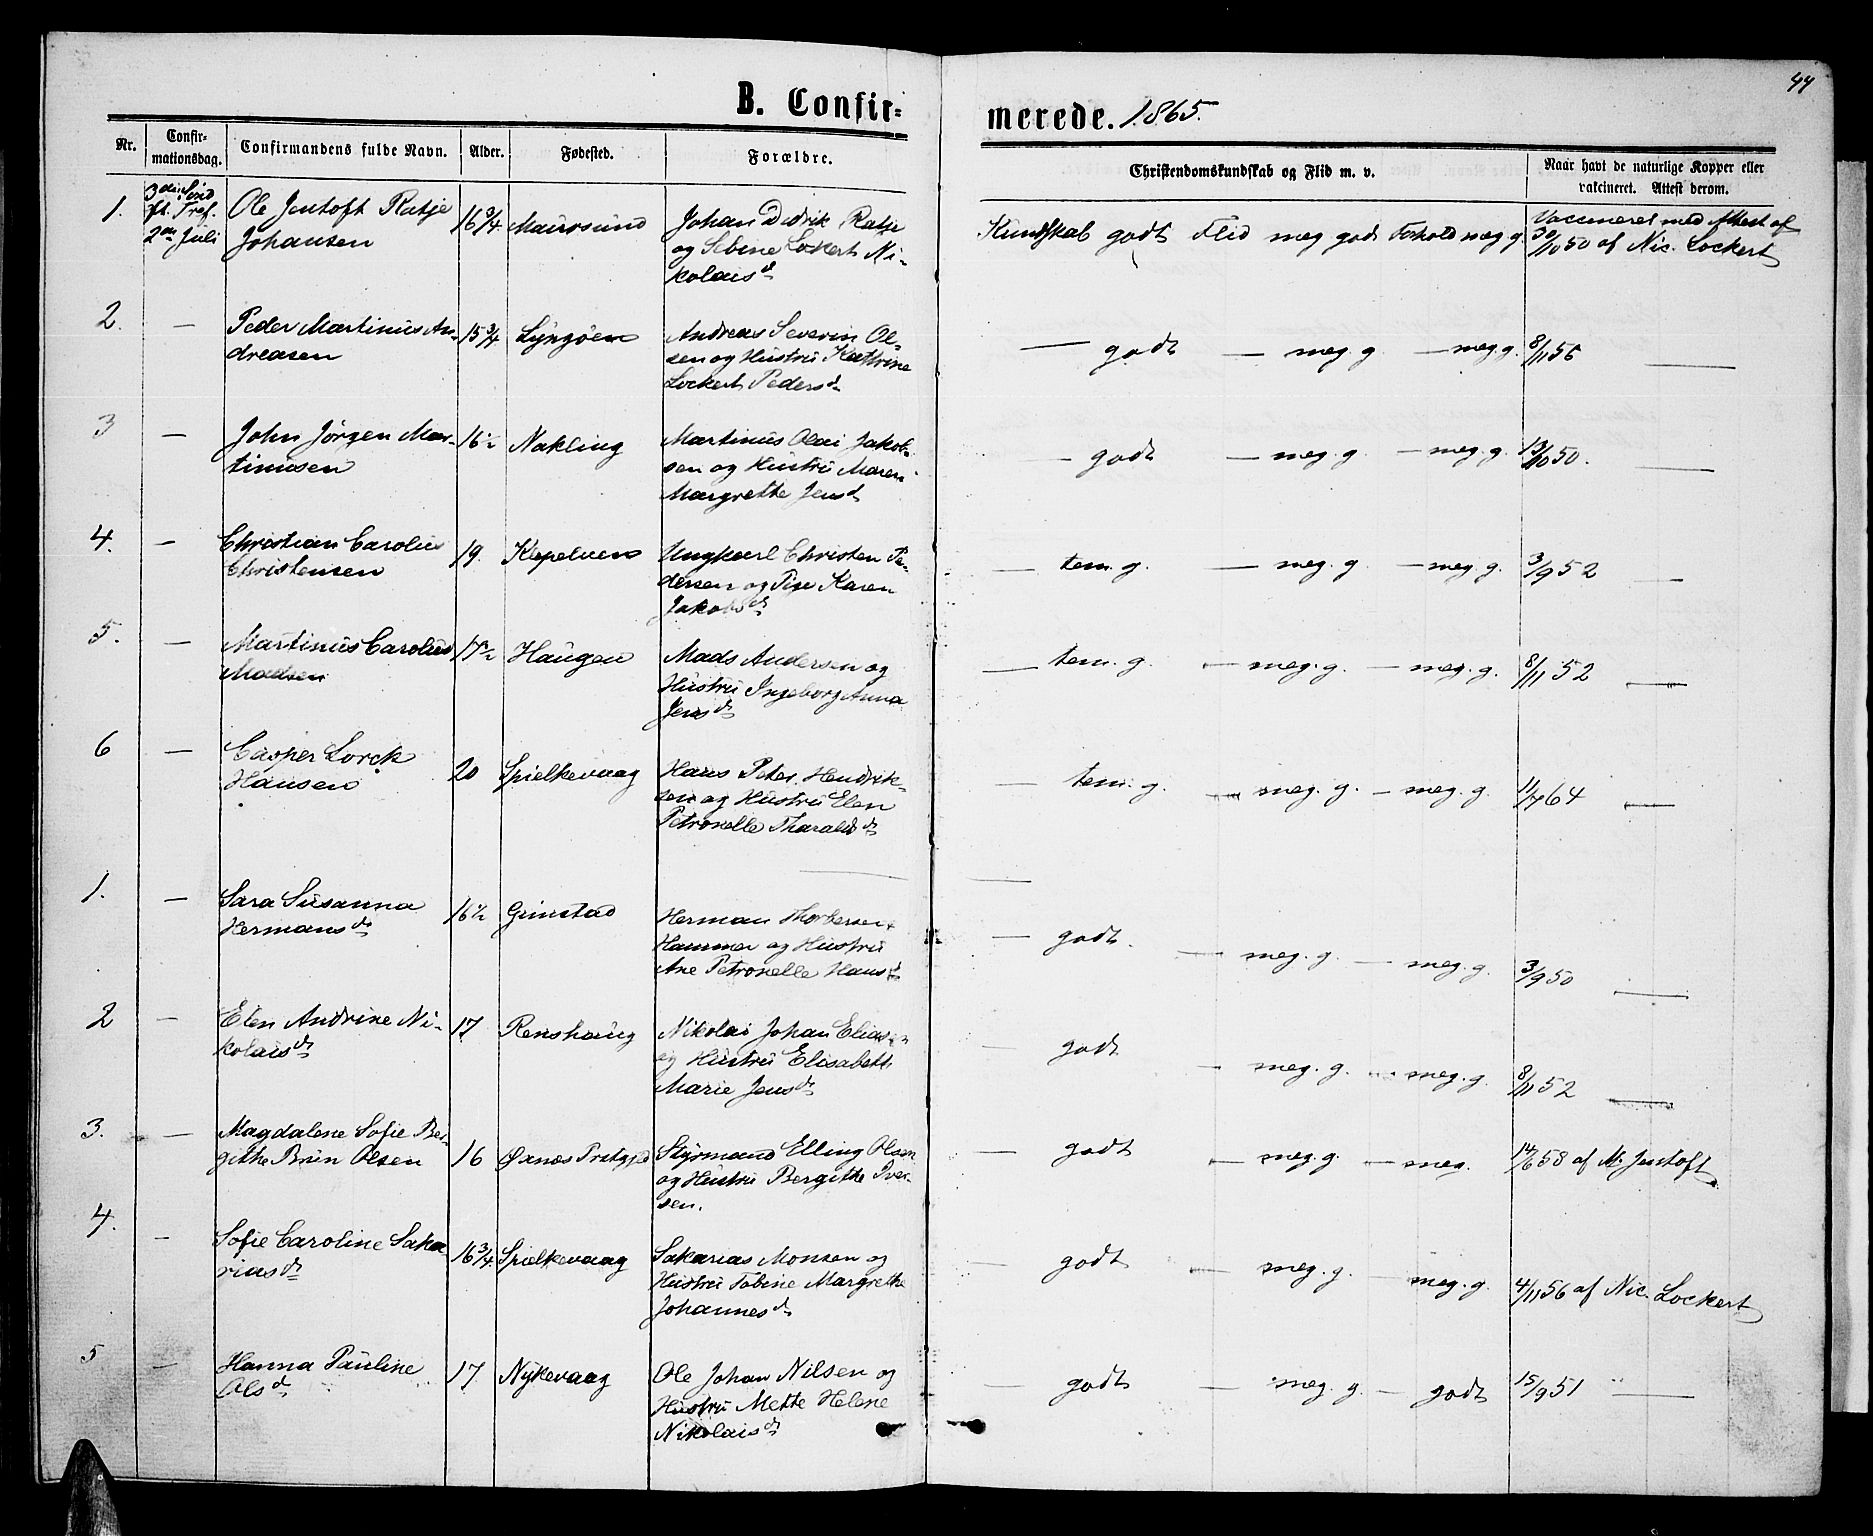 44
B. Confir-
merede. 1865.
Nr.
Confir-
mationsdag.
Confirmandens fulde Navn.
Alder.
Fødested.
Forældre.
Christendomskundskab og Flid m. v.
Naar havt de naturlige Kopper eller
vakcineret. Attest derom.
1.
3die Sønd
ft. Tref.
2den Juli
Ole Jentoft Ratje
Johansen
16 3/4
Maursund
Johan Didrik Ratje
og Sebine Lockert Ni-
kolaisd
Kundskab godt Flid meg god Forhold meg g.
Vaccineret med Attest af
30/10 50 af Nic. Lockert
2.
—
Peder Martinus An-
dreasen
15 3/4
Lyngøen
Andreas Severin Ol-
sen og Hustru Kathrine
Lockert Pedersd
— godt — meg. g — meg. g.
8/11 56 —
3
—
John Jørgen Mar-
tinusen
16 1/2
Nakling
Martinus Olai Jakob-
sen og Hustru Maren
Margrethe Jensd
— godt — meg. g. — meg. g.
13/10 50. —
4.
—
Christian Carolius
Christensen
19.
Kapelven
Ungkarl Christen Pe-
dersen og Pige Karen
Jakobsd
— tem. g. — meg. g — meg. g.
3/9 52 —
5.
—
Martinus Carolius
Madsen
17 1/2
Haugen
Mads Andersen og
Hustru Ingeborg Anna
Jensd
— tem. g. — meg. g. — meg. g.
8/11 52 —
6
—
Casper Lorck
Hansen
20
Spielkevaag
Hans Peter Hendrik-
sen og Hustru Elen
Petronelle Tharaldsd
— tem. g. — meg. g. — meg. g.
11/7 64 —
1.
—
Sara Susanna
Hermansd
16 1/2
Grimstad
Herman Thorbersen
Hammer og Hustru
Ane Petronelle Hansd
— godt. — meg. g. — meg. g.
3/9 50 —
2
—
Elen Andrine Ni-
kolaisd
17
Renshaug
Nikolai Johan Eliasen
og Hustru Elisabeth
Marie Jensd
— godt — meg. g. — meg. g.
8/11 52 —
3.
—
Magdalene Sofie Ber-
githe Brun Olsen
16
Øxnæs Prstgjd
Styrmand Elling Olsen
og Hustru Bergithe Iver-
sen.
— godt — meg. g. — meg.
14/6 58 af M. Jentoft
4.
—
Sofie Caroline Saka-
riasd
16 3/4
Spielkevaag
Sakarias Monsen og
Hustru Tobine Margrethe
Johannesd
— godt — meg. g. — meg. g.
4/11 56 af Nic. Lockert
5
—
Hanna Pauline
Olsd
17
Nykevaag
Ole Johan Nilsen og
Hustru Mette Helene
Nikolaisd
— godt — meg. g. — godt
15/9 51 —